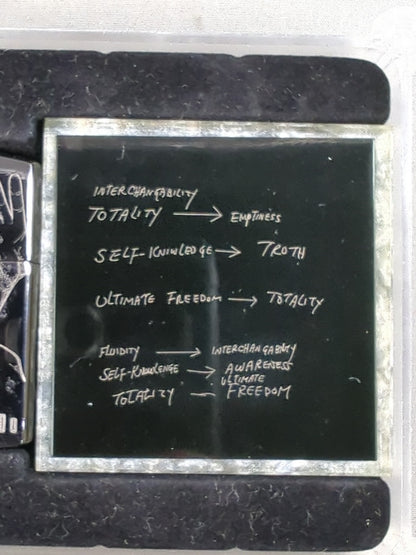 INTERCHANGABILITY
TOTALITY → EMPTINESS
SELF-KNOWLEDGE → TRUTH
ULTIMATE FREEDOM → TOTALITY
FLUIDITY → INTERCHANGABILITY
SELF-KNOWLENGE → AWARENESS
ULTIMATE
TOTALITY — FREEDOM